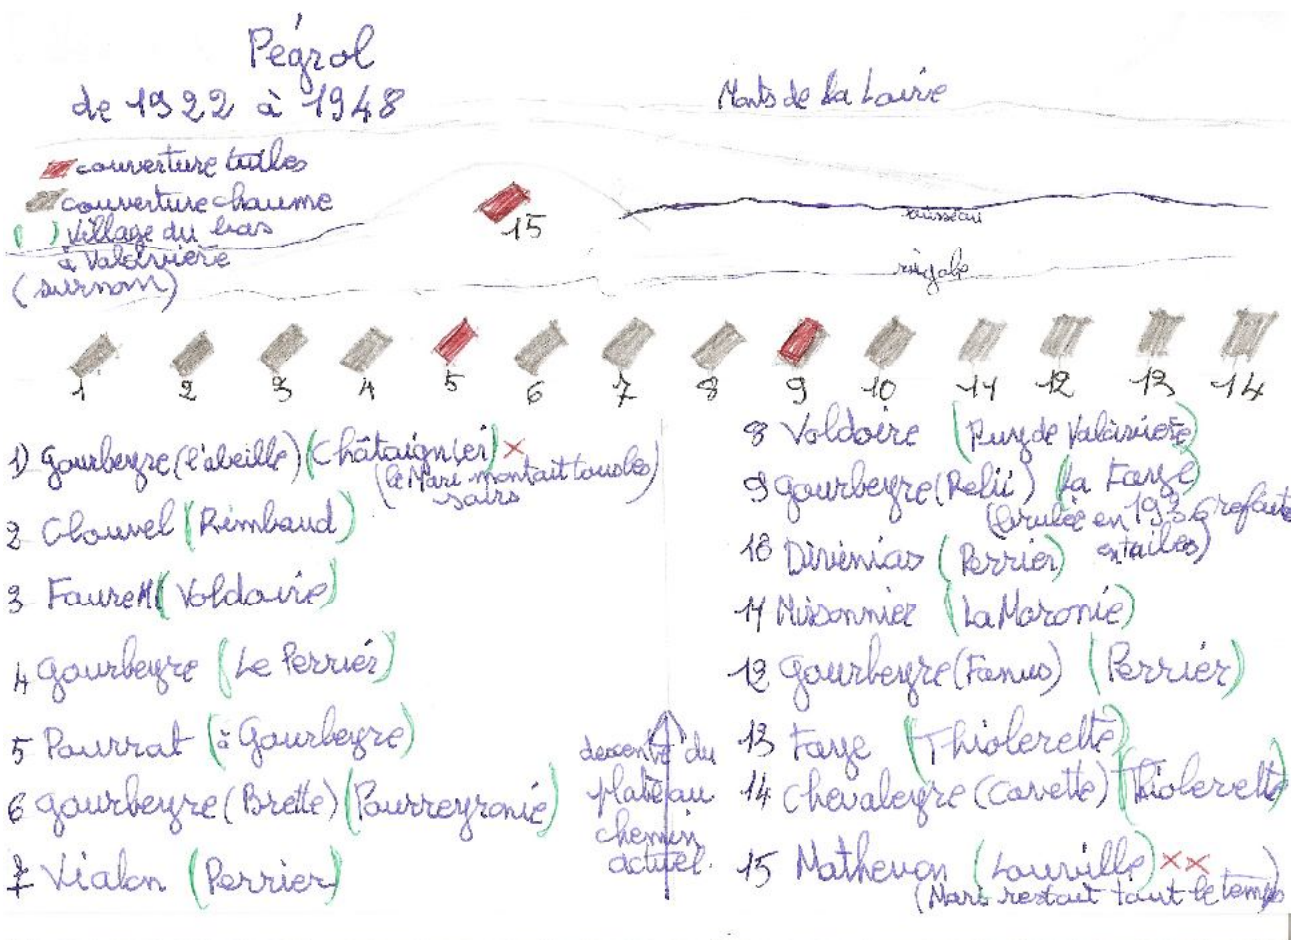 Pégrol
de 1922 à 1948
Monts de la Loire
couverture tuiles
couverture chaume
( ) Village du bas
à Valcivière
(surnom)
15
ruisseau
rigole
1 2 3 4 5 6 7 8 9 10 11 12 13 14
1) Gourbeyre (l'abeille) (Châtaignier) ×
(le Mari montait tous les
soirs
2 Chouvel (Rimbaud)
3 Faure M (Voldoire)
4 Gourbeyre (Le Perrier)
5 Pourrat (à Gourbeyre)
6 Gourbeyre (Brette) (Pourreyronie)
7 Vialon (Perrier)
descente du
plateau
chemin
actuel.
8 Voldoire (Puy de Valcivière)
9 Gourbeyre (Relii) (la Faye)
(brulée en 1936 refaite
en tuiles)
10 (Perrier)
11 Missonnier (La Moronie)
12 Gourbeyre (Fanus) (Perrier)
13 Faye (Thiolerette)
14 Chevaleyre (Cavette) (Thiolerette)
15 Mathevon (Lourville) ××
(Mari restait tout le temps)